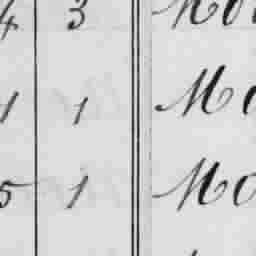 4 3 Mo
1 1 Mo
5 1 Mo